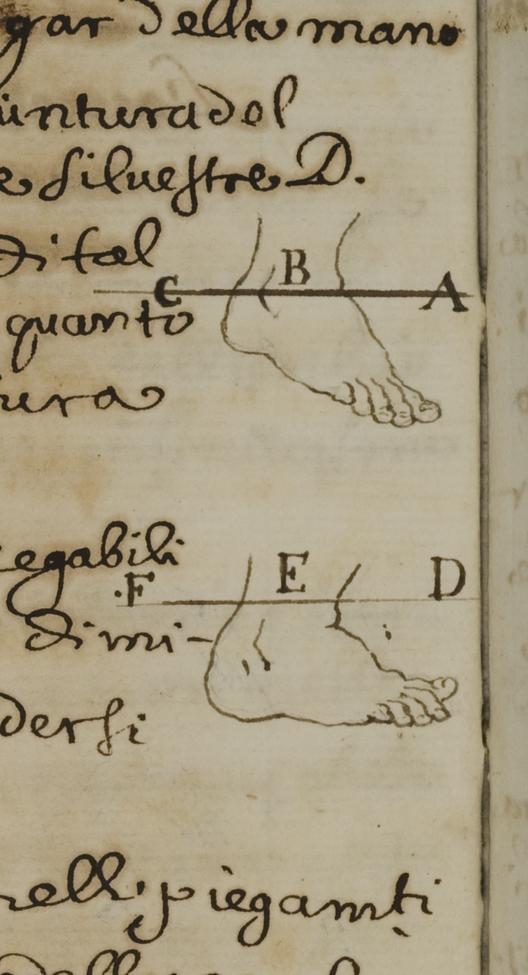 gar della mano
untura del
e silvestre D.
di tal
C B A
quanto
ura
egabili
.F E D
di mi-
dersi
nelli piegamti